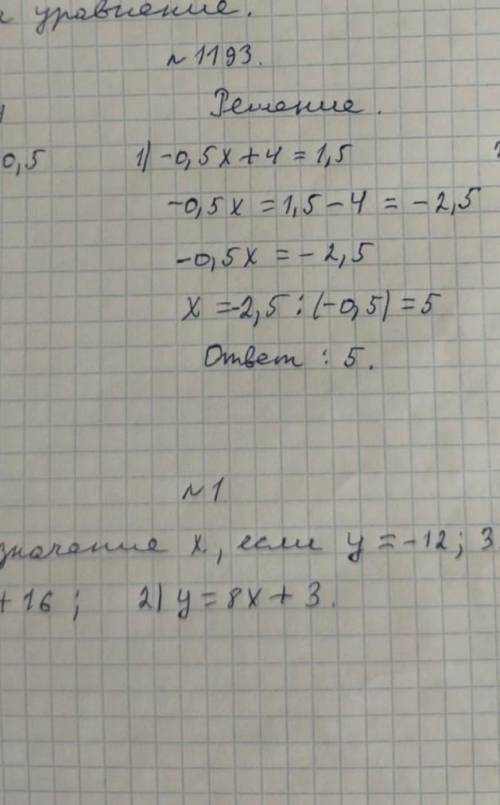 уравнение.
№ 1193.
Решение.
0,5 1) -0,5x + 4 = 1,5
-0,5x = 1,5 - 4 = -2,5
-0,5x = -2,5
x = -2,5 : (-0,5) = 5
Ответ : 5.
№ 1
значение x, если y = -12; 3
+ 16 ; 2) y = 8x + 3.